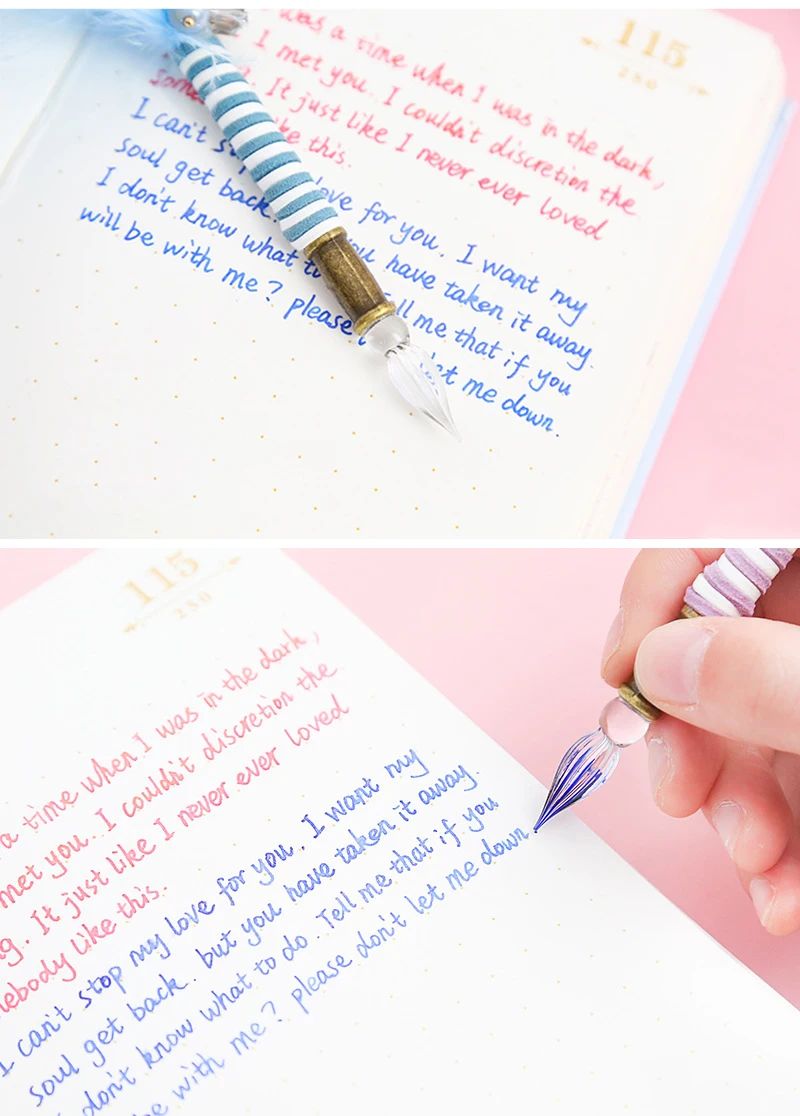 115
250
was a time when I was in the dark,
I met you. I couldn't discretion the
It just like I never ever loved
like this.
I can't stop love for you, I want my
soul get back. you have taken it away.
I don't know what to tell me that if you
will be with me? please let me down.
115
250
a time when I was in the dark,
met you. I couldn't discretion the
g. It just like I never ever loved
mebody like this.
I can't stop my love for you, I want my
soul get back. but you have taken it away.
I don't know what to do. Tell me that if you
be with me? please don't let me down.